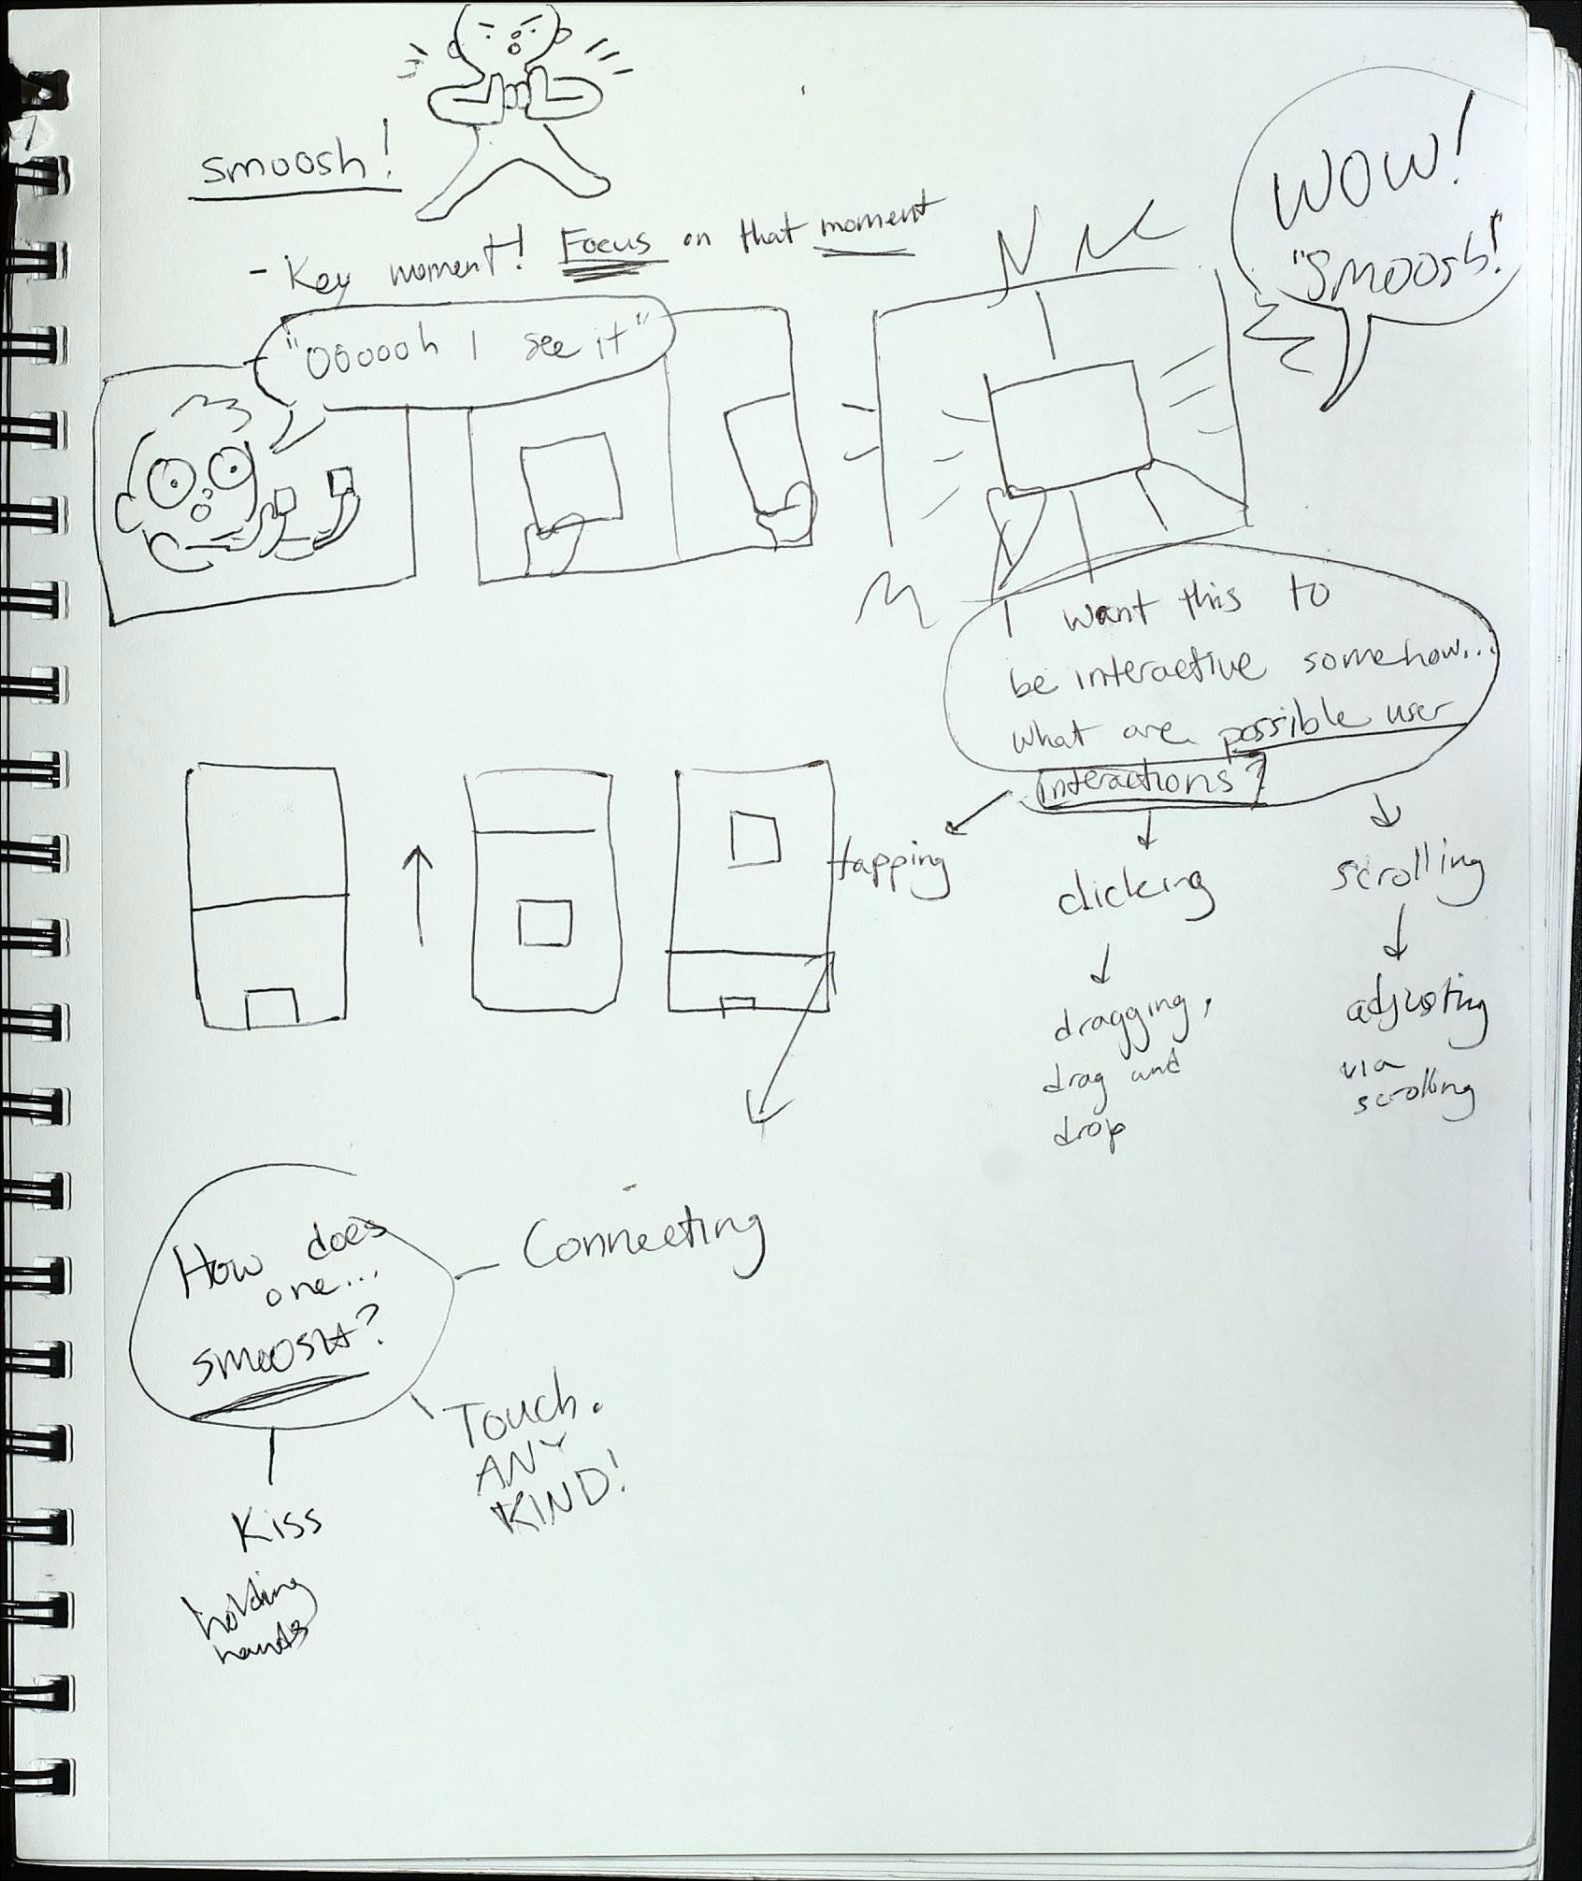 smoosh!
- Key moment! Focus on that moment
WOW!
"Smoosh!"
"Oooooh I see it"
I want this to
be interactive somehow...
what are possible user
interactions?
tapping
clicking
scrolling
dragging,
drag and
drop
adjusting
via
scrolling
How does
one...
SMOOSH?
Connecting
Touch.
ANY
KIND!
Kiss
holding
hands